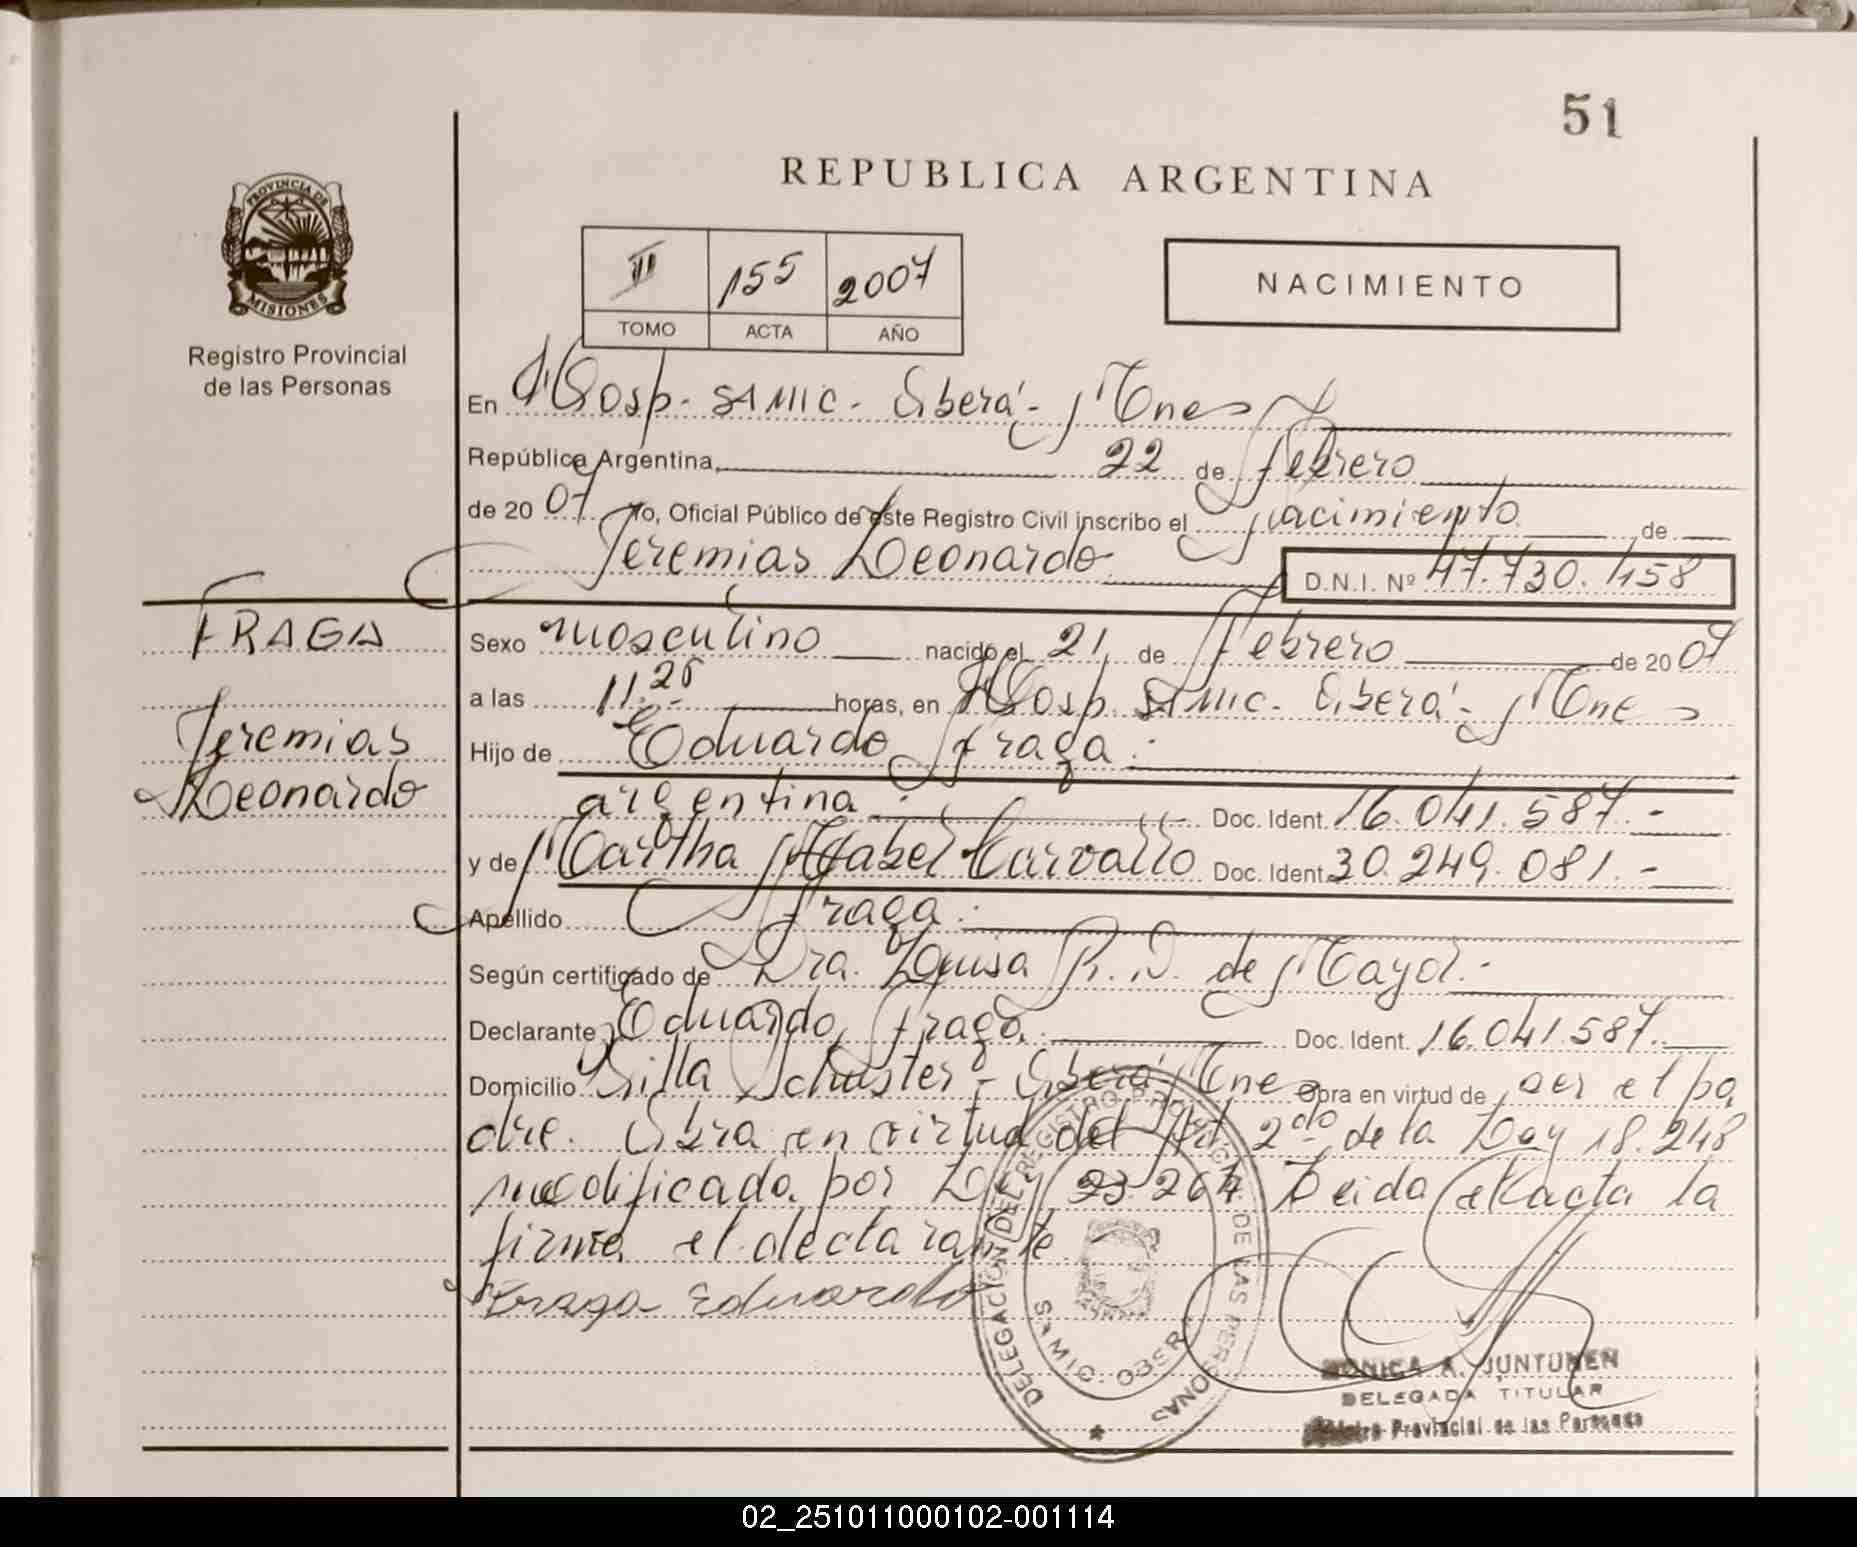 51
REPUBLICA ARGENTINA
PROVINCIA DE
MISIONES
Registro Provincial
de las Personas
II 155 2007
TOMO ACTA AÑO
NACIMIENTO
En Hosp. SAMIC - Oberá - Mnes
República Argentina, 22 de febrero
de 20 07 Yo, Oficial Público de este Registro Civil inscribo el nacimiento de
Jeremias Leonardo D.N.I. Nº 47.730.158
FRAGA
Jeremias
Leonardo
Sexo masculino nacido el 21 de Febrero de 20 07
a las 11.20 horas, en Hosp. SAMIC - Oberá - Mnes
Hijo de Eduardo Fraga.
argentina. Doc. Ident. 16.041.587.-
y de Martha Isabel Carvallo Doc. Ident. 30.249.081.-
Apellido Fraga.
Según certificado de Dra. Luisa R. D. de Mayol.-
Declarante Eduardo Fraga. Doc. Ident. 16.041.587.
Domicilio Villa Schuster - Oberá Mnes Obra en virtud de ser el pa
dre. Obra en virtud del Art 2do de la Ley 18.248
modificada por Ley 23.264 Leida el acta la
firma el declarante
Fraga Eduardo
DELEGACIÓN DEL REGISTRO PROVINCIAL DE LAS PERSONAS
SAMIC OBERA
MONICA A. JUNTUNEN
DELEGADA TITULAR
Registro Provincial de las Personas
02_251011000102-001114